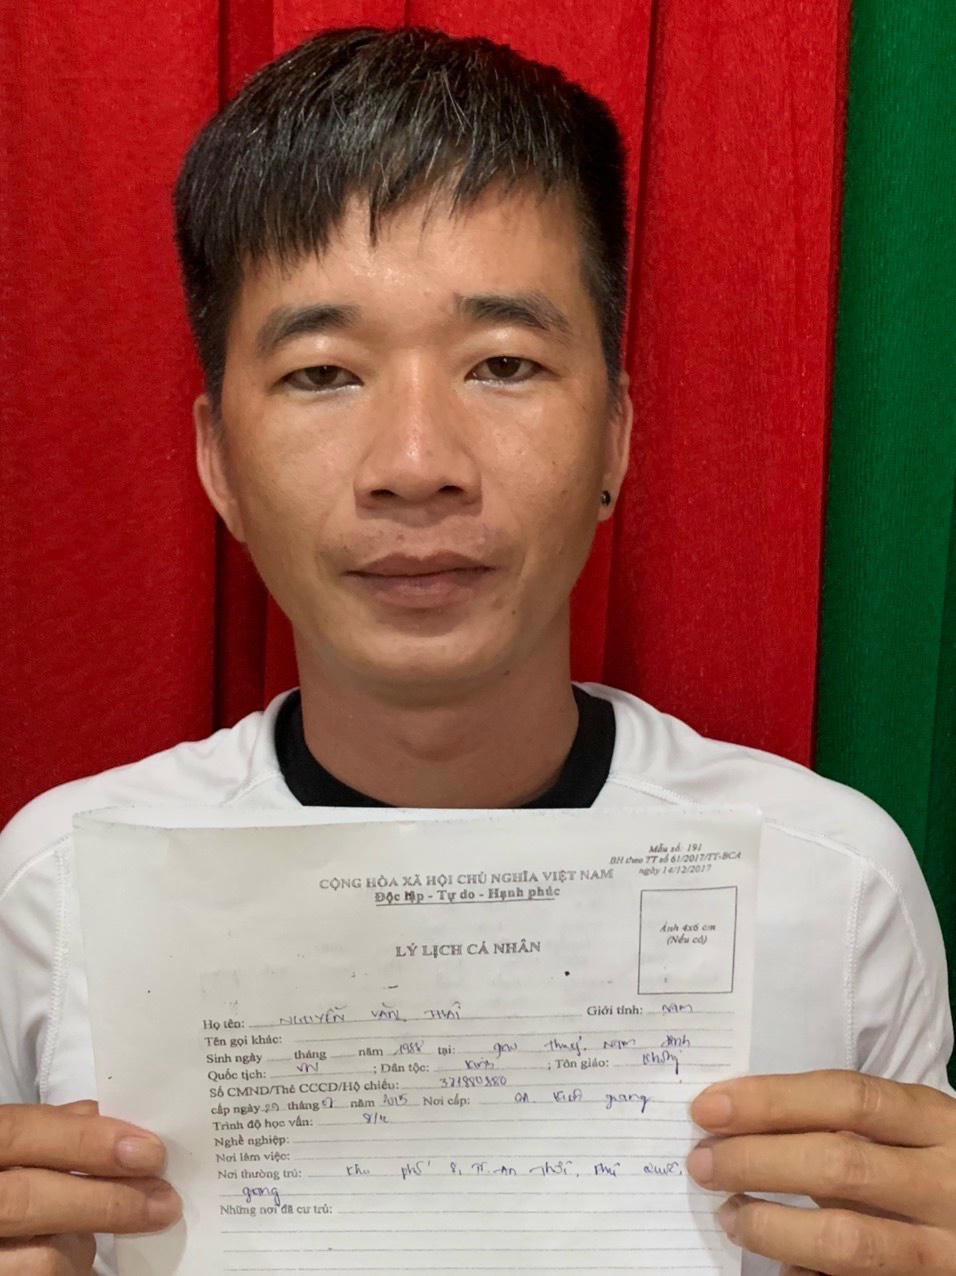 Mẫu số: 191
BH theo TT số 61/2017/TT-BCA
ngày 14/12/2017
CỘNG HÒA XÃ HỘI CHỦ NGHĨA VIỆT NAM
Độc lập - Tự do - Hạnh phúc
Ảnh 4x6 cm
(Nếu có)
LÝ LỊCH CÁ NHÂN
Họ tên: NGUYỄN VĂN THÁI Giới tính: NAM
Tên gọi khác:
Sinh ngày tháng năm 1988 tại: giao Thuỷ, Nam định
Quốc tịch: VN ; Dân tộc: Kinh ; Tôn giáo: Không
Số CMND/Thẻ CCCD/Hộ chiếu:
cấp ngày tháng năm 2015 Nơi cấp: CA Kiên giang
Trình độ học vấn:
Nghề nghiệp:
Nơi làm việc:
Nơi thường trú: Khu phố 8, TT. An Thới, Phú Quốc,
giang
Những nơi đã cư trú: